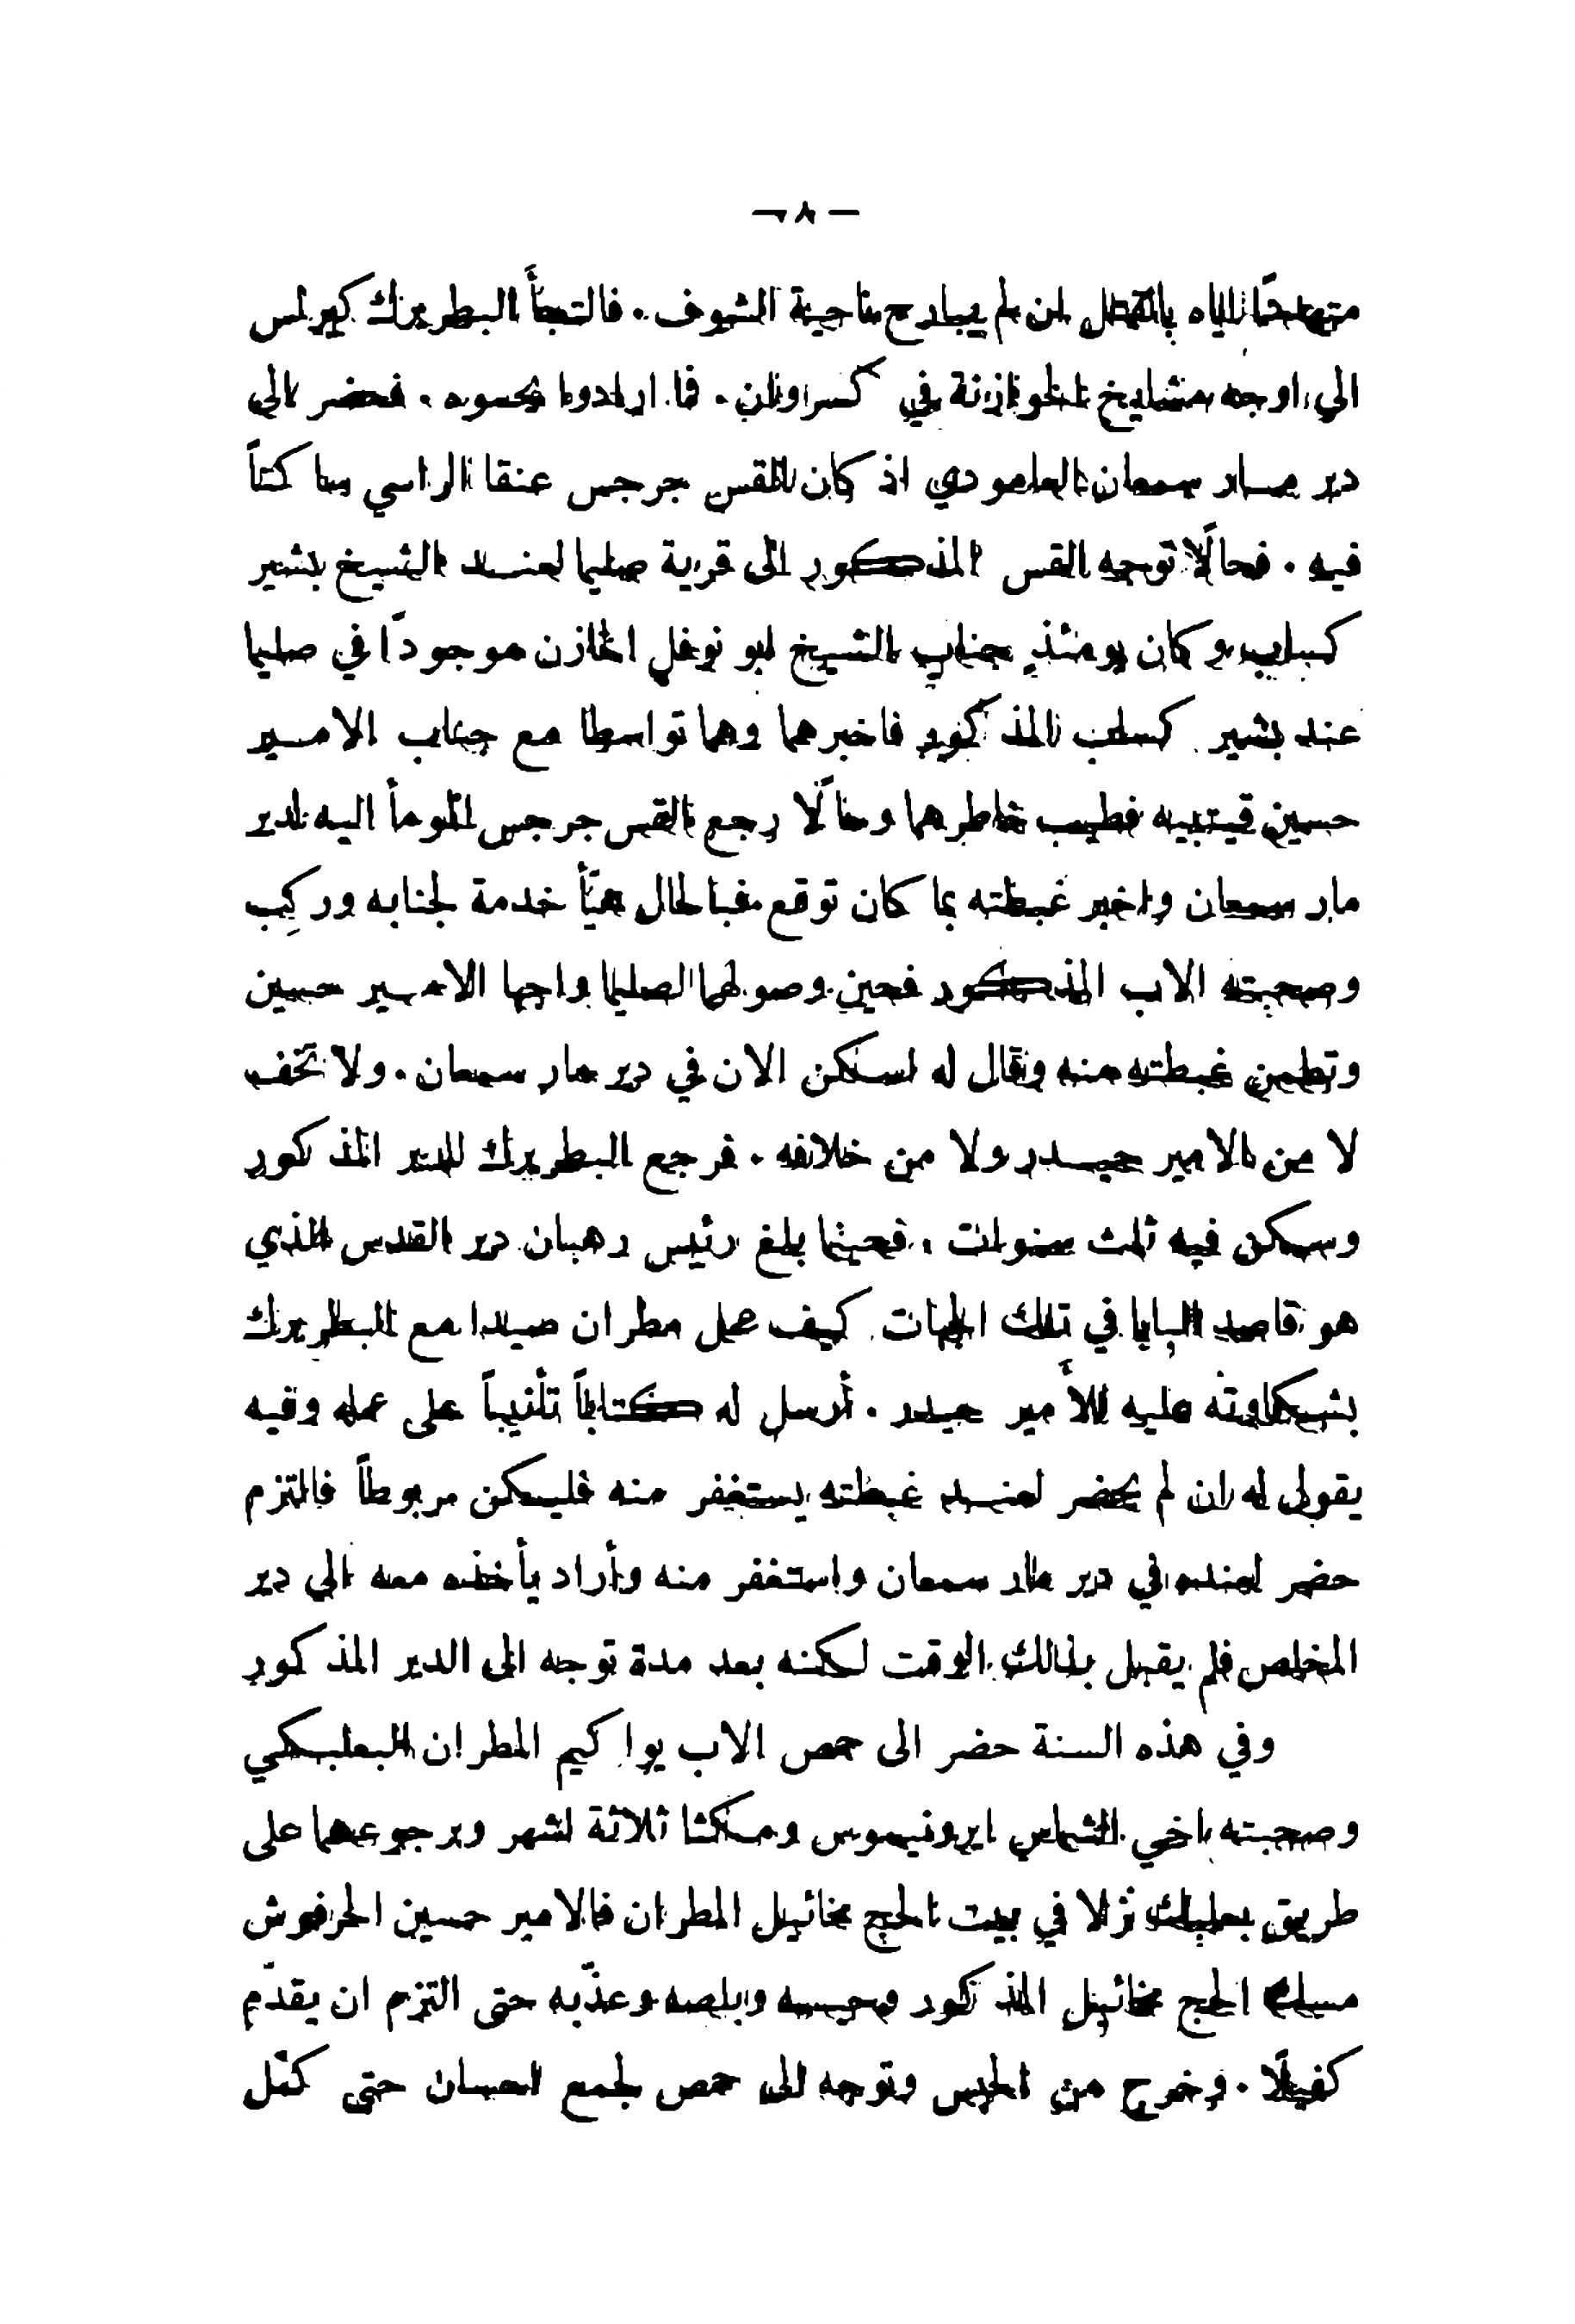 — ٨ —
متهددًا اياه بالقتل ان لم يبارح ناحية الشوف . فالتجأ البطريرك كيرلس
الى اوجه مشايخ الخوازنة في كسروان . فما ارادوا يحموه . فحضر الى
دير مار سمعان العامودي اذ كان القس جرجس عنقا الراسي ساكناً
فيه . فحالًا توجه القس المذكور الى قرية صليما لعند الشيخ بشير
كساب وكان يومئذٍ جناب الشيخ ابو نوفل الخازن موجودًا في صليما
عند بشير كساب المذكور فاخبرهما وهما تواسطا مع جناب الامير
حسين قيتبيه فطيب خاطرهما وحالًا رجع القس جرجس المومأ اليه لدير
مار سمعان واخبر غبطته بما كان توقع فبالحال هيّأ خدمة لجنابه وركِب
وصحبته الاب المذكور فحين وصولهما لصليما واجها الامير حسين
وتطمن غبطته منه وقال له اسكن الان في دير مار سمعان . ولا تخف
لا من الامير حيدر ولا من خلافه . فرجع البطريرك للدير المذكور
وسكن فيه ثلث سنوات . فحينما بلغ رئيس رهبان دير القدس الذي
هو قاصد البابا في تلك الجهات كيف عمل مطران صيدا مع البطريرك
بشكاوته عليه للأمير حيدر . أرسل له كتاباً تأنيباً على عمله وفيه
يقول له ان لم يحضر لعند غبطته يستغفر منه فليكن مربوطاً فالتزم
حضر لعنده في دير مار سمعان واستغفر منه وأراد يأخذه معه الى دير
المخلص فلم يقبل بذلك الوقت لكنه بعد مدة توجه الى الدير المذكور
وفي هذه السنة حضر الى حمص الاب يواكيم المطران البعلبكي
وصحبته اخي الشماس ايرونيموس ومكثا ثلاثة اشهر وبرجوعهما على
طريق بعلبك نزلا في بيت الحج مخائيل المطران فالامير حسين الحرفوش
مسك الحج مخائيل المذكور وحبسه وابلصه وعذّبه حتى التزم ان يقدّم
كفيلًا . وخرج من الحبس وتوجه الى حمص لجمع احسان حتى كمّل